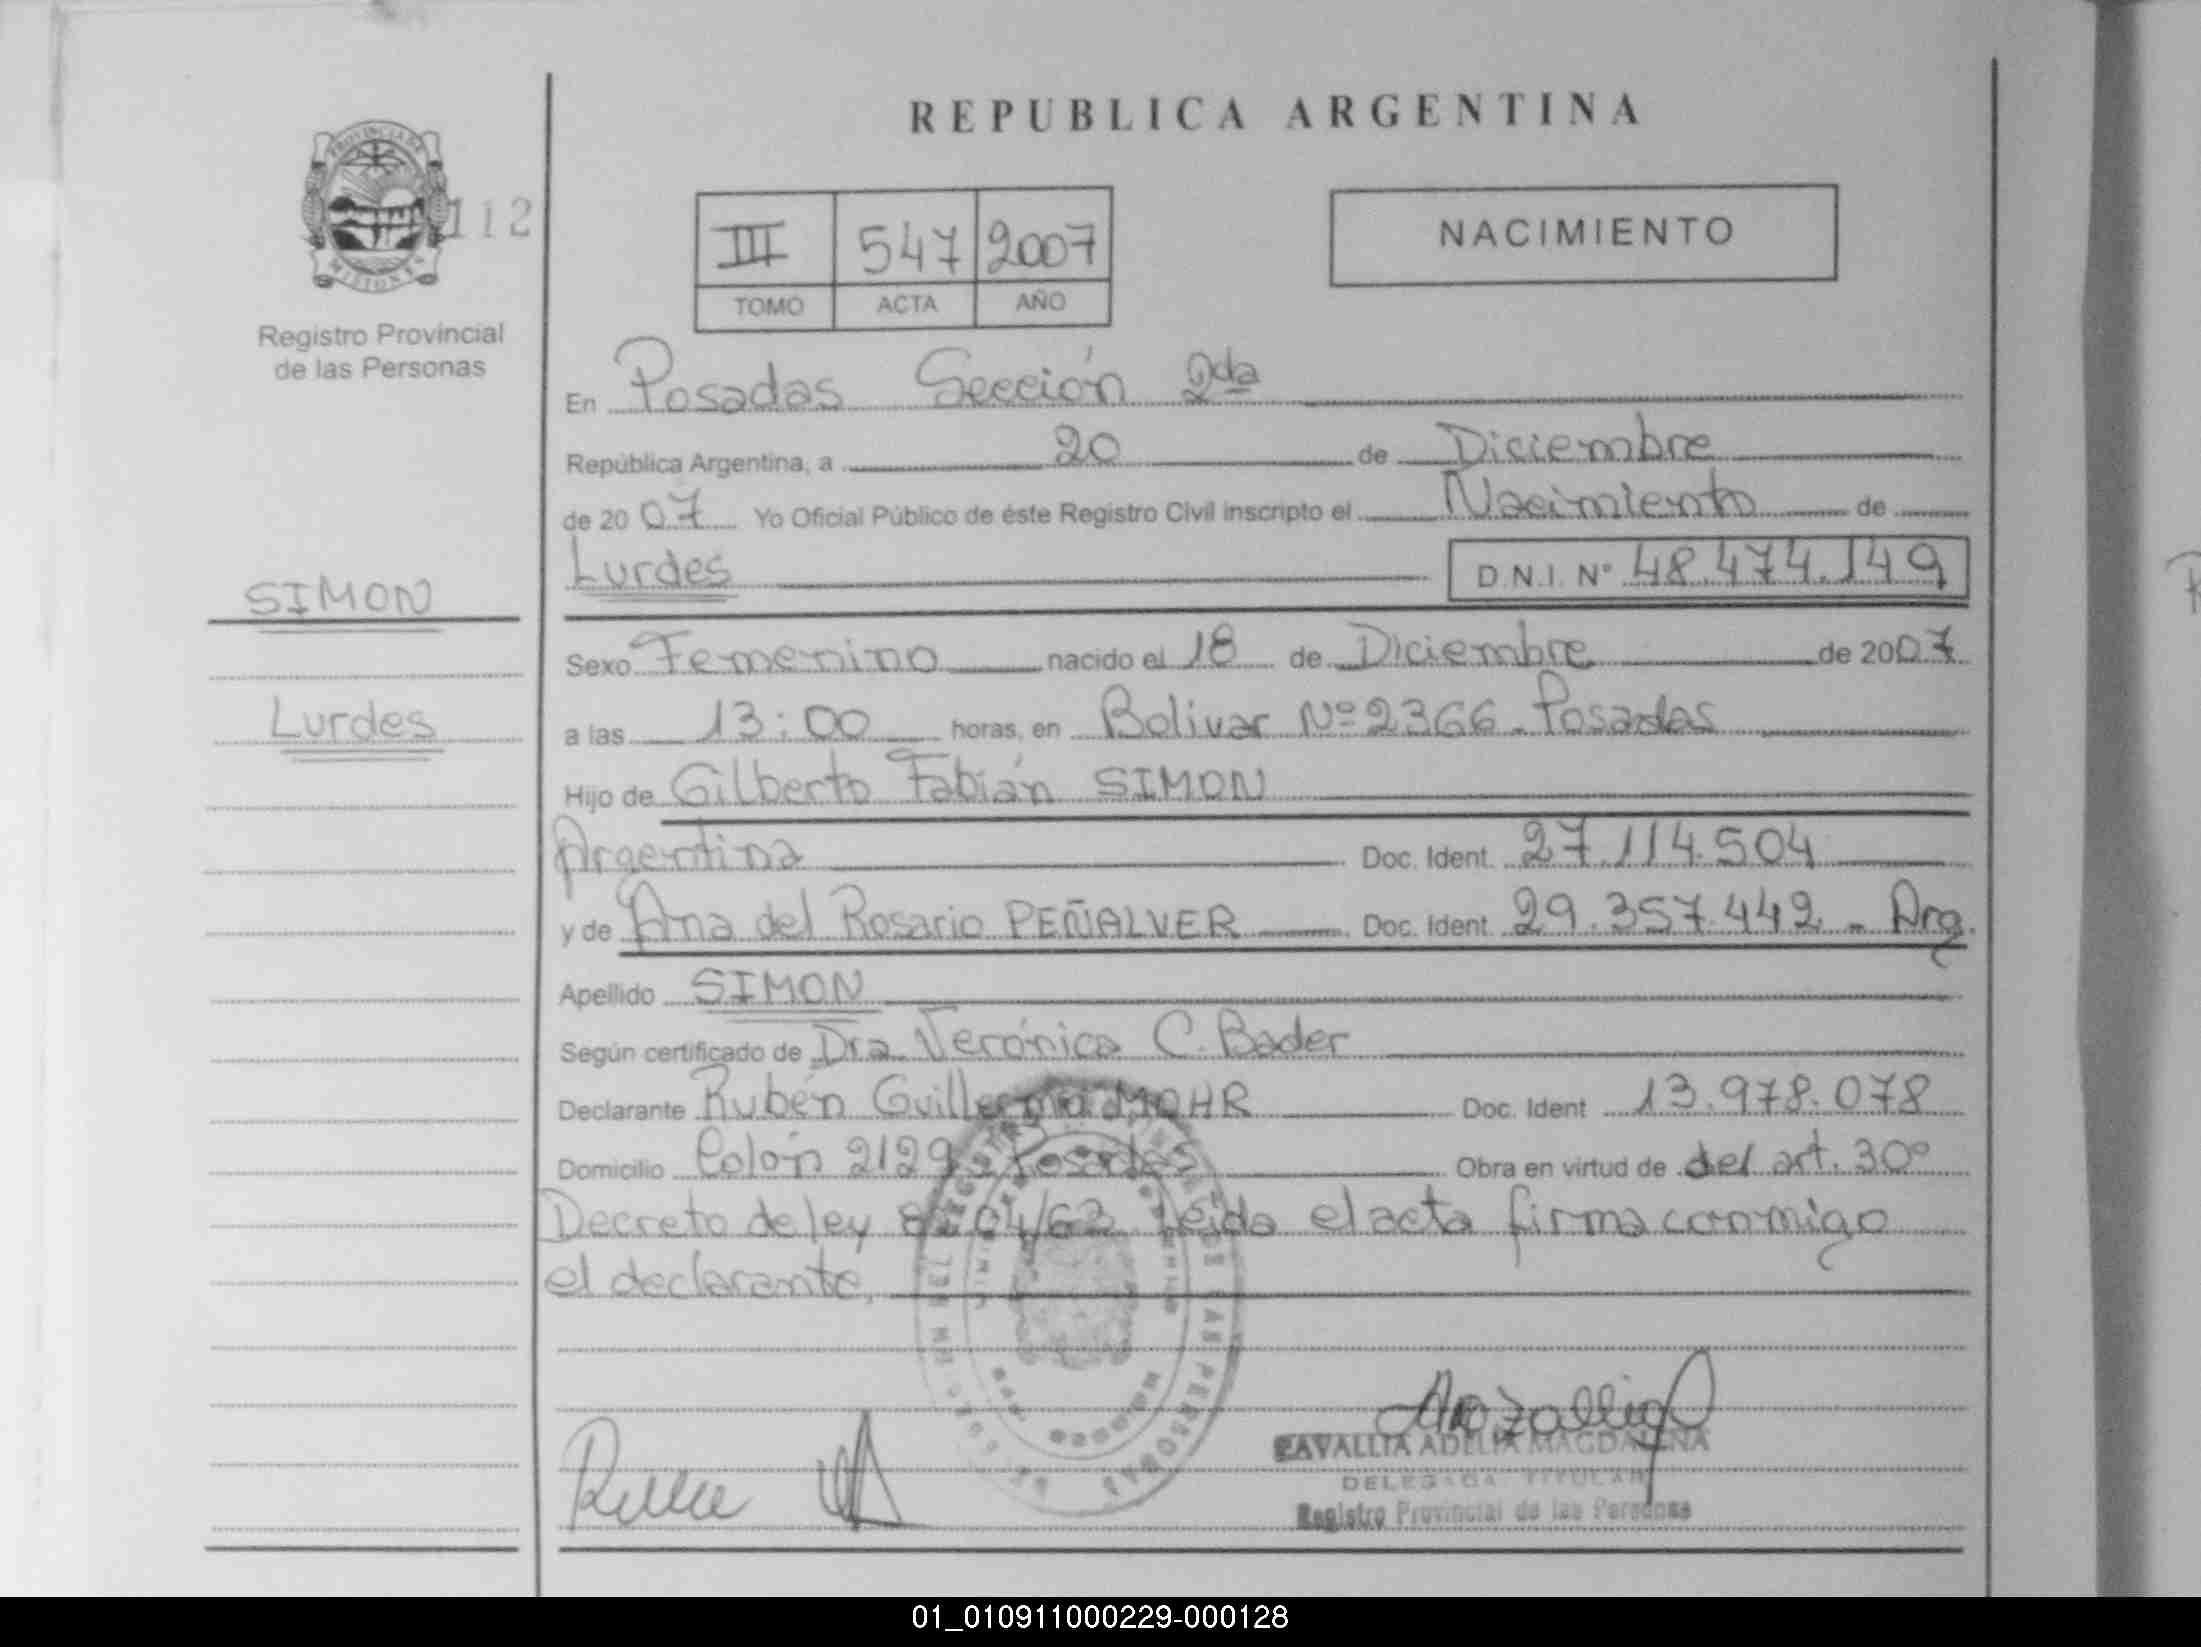 REPUBLICA ARGENTINA
PROVINCIA DE
MISIONES
112
Registro Provincial
de las Personas
III 547 2007
TOMO ACTA AÑO
NACIMIENTO
En Posadas Sección 2da
República Argentina, a 20 de Diciembre
de 2007 Yo Oficial Público de éste Registro Civil inscripto el Nacimiento de
Lurdes D.N.I. Nº 48.474.149
SIMON
Sexo Femenino nacido el 18 de Diciembre de 2007
Lurdes
a las 13:00 horas, en Bolivar Nº 2366 - Posadas
Hijo de Gilberto Fabián SIMON
Argentina Doc. Ident. 27.114.504
y de Ana del Rosario PEÑALVER Doc. Ident. 29.357.442 - Arg.
Apellido SIMON
Según certificado de Dra. Verónica C. Bader
Declarante Rubén Guillermo MOHR Doc. Ident 13.978.078
Domicilio Colón 2129 - Posadas Obra en virtud de del art. 30º
Decreto de ley 8204/63 Leida el acta firma conmigo
el declarante,
DE LAS PERSONAS
ADELIA MAGDALENA
DELEGADA TITULAR
Registro Provincial de las Personas
01_010911000229-000128